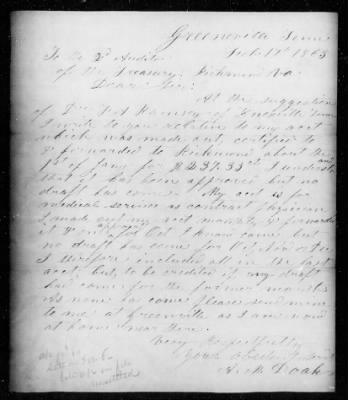 Greeneville Tenn
Feb 12th 1863
To the 2d Auditor
of the Treasury, Richmond Va.
Dear Sir:
At the suggestion
of Dr. Ramsey of Knoxville Tenn
I write to you relative to my acct
which was made out, certified to
& forwarded to Richmond about the
1st of Jany for
that it has been approved but no
draft has come. My acct is for
medical service as contract physician
I made out my acct monthly & forwarded
for Oct I know came but
no draft has come for
I therefore included all in the last
acct, but, to be credited if any draft
had come for the former months
As none has come please send mine
to me at Greeneville as I am now
at home near there.
Very Respectfully
Your obedient Servt
Doak